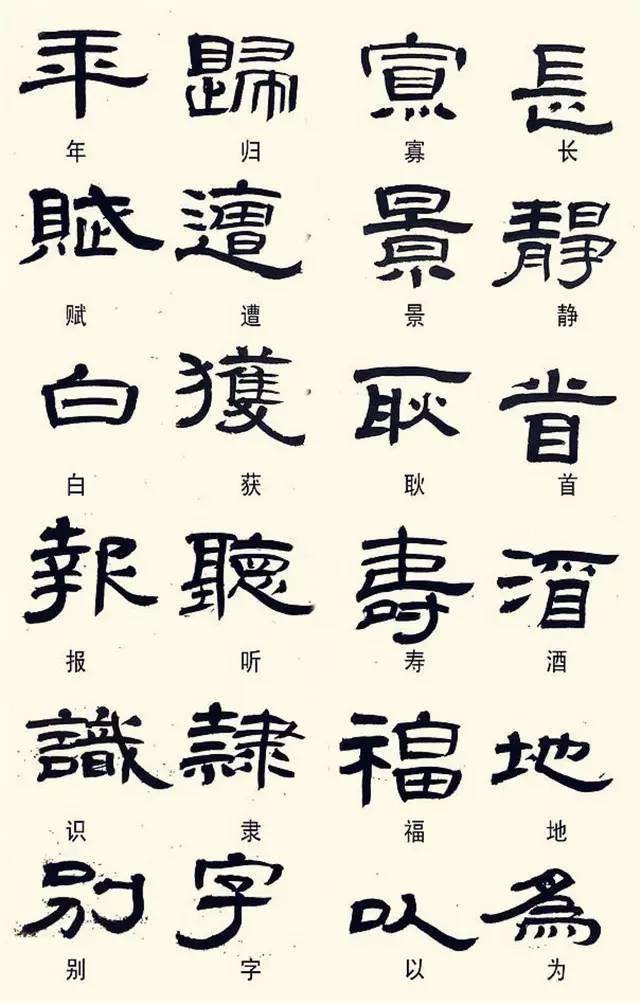 年 歸 寡 長
年 归 寡 长
賦 遭 景 靜
赋 遭 景 静
白 獲 耿 首
白 获 耿 首
報 聽 壽 酒
报 听 寿 酒
識 隸 福 地
识 隶 福 地
別 字 以 為
别 字 以 为